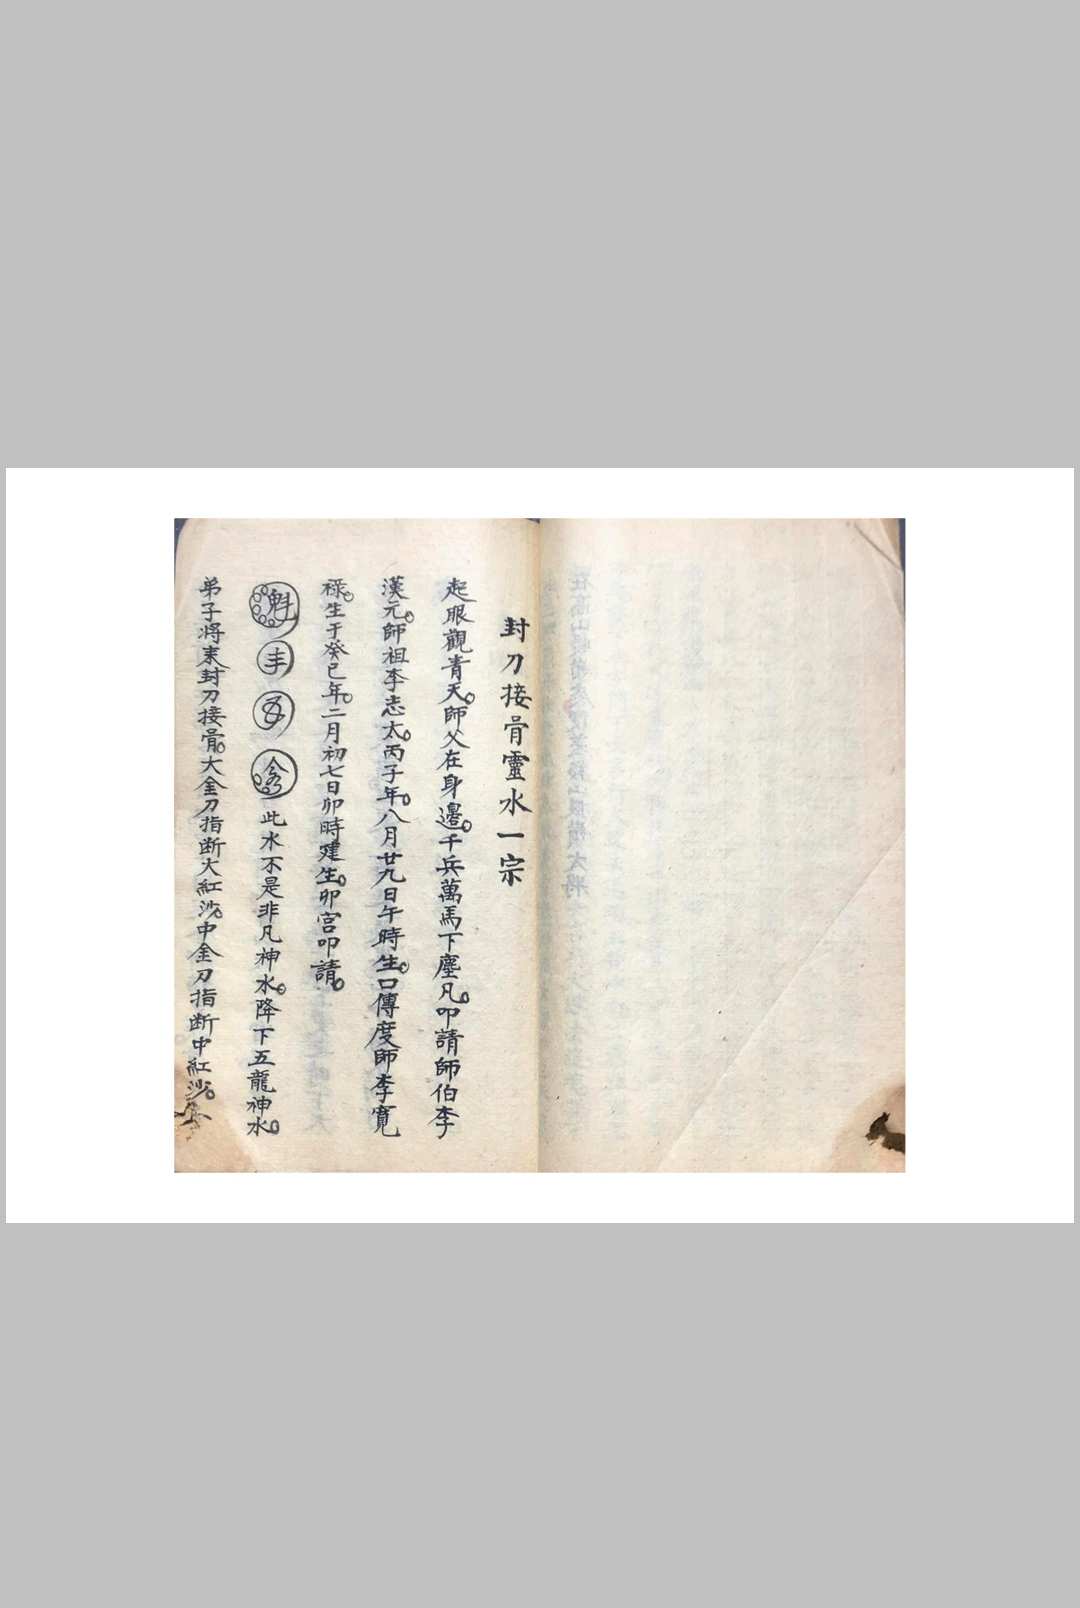 封刀接骨靈水一宗
起眼觀青天。師父在身邊。千兵萬馬下塵凡。叩請師伯李
漢元。師祖李志太。丙子年。八月廿九日午時生。口傳度師李寬
祿。生于癸巳年。二月初七日卯時建生。卯宮叩請。
魁 丰 此水不是非凡神水。降下五龍神水。
弟子將來封刀接骨。大金刀指断大紅沙。中金刀指断中紅沙。